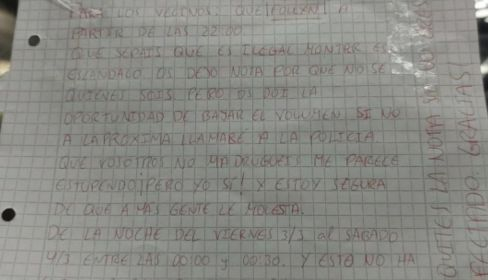 PARA LOS VECINOS: QUE FOLLEN! A
PARTIR DE LAS 22:00
QUE SEPAIS QUE ES ILEGAL MONTAR ES
ESCANDALO. OS DEJO NOTA POR QUE NO SE
QUIENES SOIS PERO OS DOI LA
OPORTUNIDAD DE BAJAR EL VOLUMEN, SI NO
A LA PROXIMA LLAMARE A LA POLICIA
QUE VOSOTROS NO MADRUGUEIS ME PARECE
ESTUPENDO, ¡PERO YO SÍ! Y ESTOY SEGURA
DE QUE A MAS GENTE LE MOLESTA.
DE LA NOCHE DEL VIERNES 3/3 al SABADO
4/3 ENTRE LAS 00:00 y 00:30. Y ESTO NO HA
QUITEIS LA NOTA
GRACIAS!